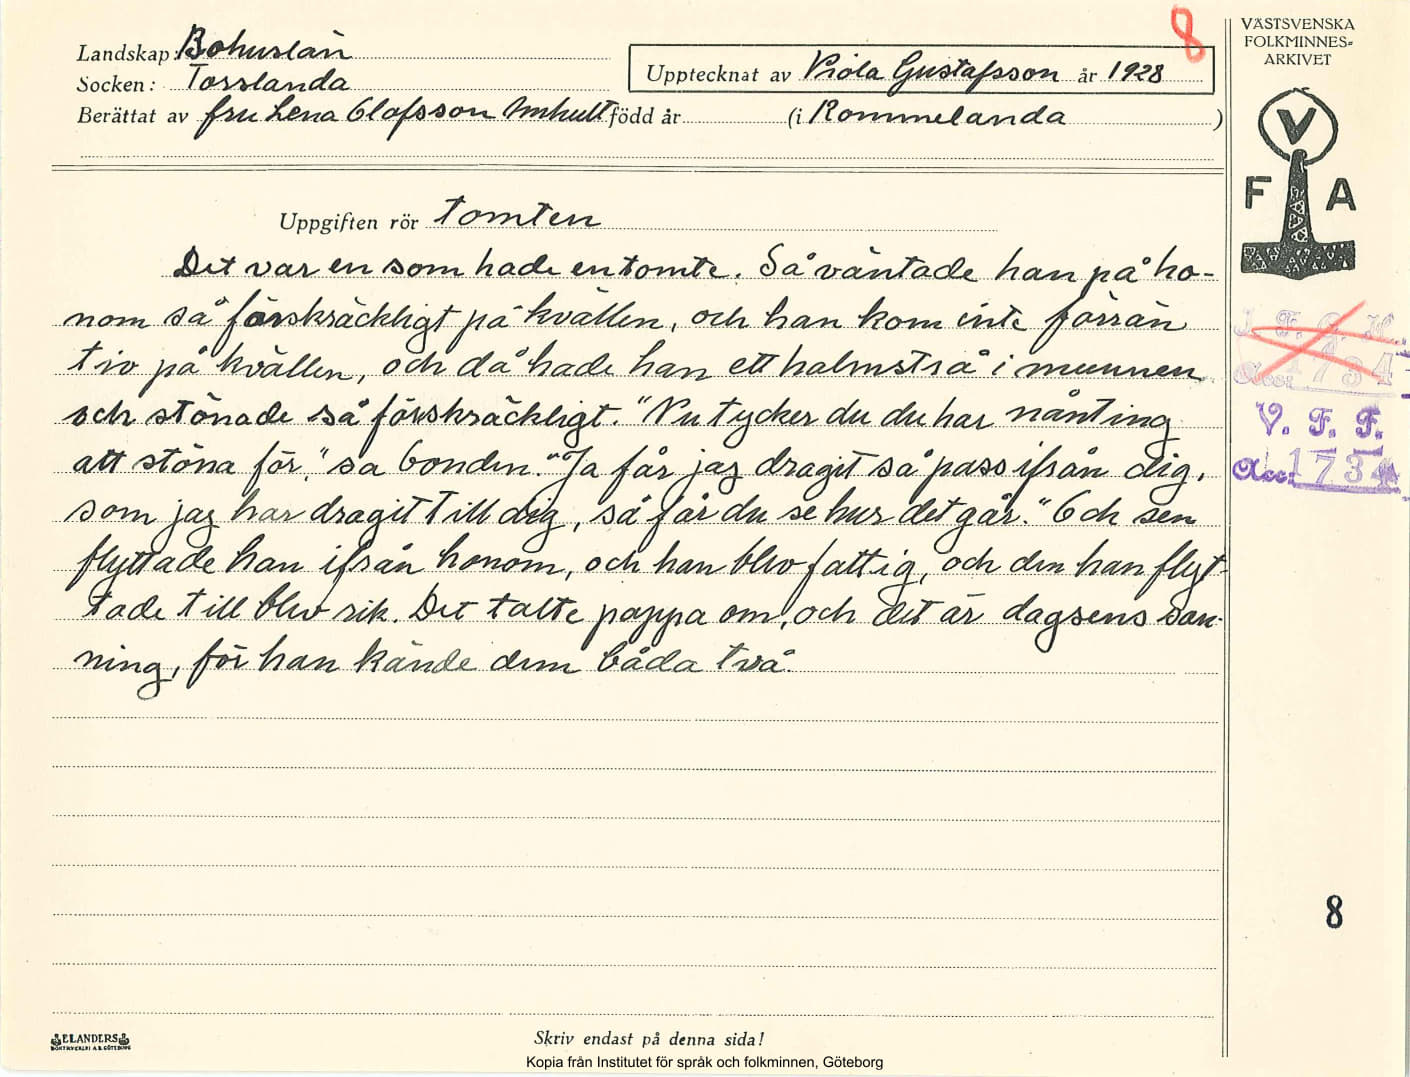 8
VÄSTSVENSKA
FOLKMINNES=
ARKIVET
Landskap: Bohuslän
Socken: Torslanda
Upptecknat av Viola Gustafsson år 1928
Berättat av fru Lena Olofsson Småhult född år (i Rommelanda)
V
F A
Uppgiften rör tomten
Det var en som hade en tomte. Så väntade han på ho-
nom så förskräckligt på kvällen, och han kom inte förrän
tio på kvällen, och då hade han ett halmstrå i munnen
och stönade så förskräckligt. "Nu tycker du du har nånting
att stöna för," sa bonden. "Ja får jag dragit så pass ifrån dig,
som jag har dragit till dig, så får du se hur det går." Och sen
flyttade han ifrån honom, och han blev fattig, och den han flyt-
tade till blev rik. Det talte pappa om, och det är dagsens san-
ning, för han kände dem båda två.
I. F. G. H.
Acc: 1734
V. F. F.
Acc: 1734
8
ELANDERS
BOKTRYCKERI A.B. GÖTEBORG
Skriv endast på denna sida!
Kopia från Institutet för språk och folkminnen, Göteborg